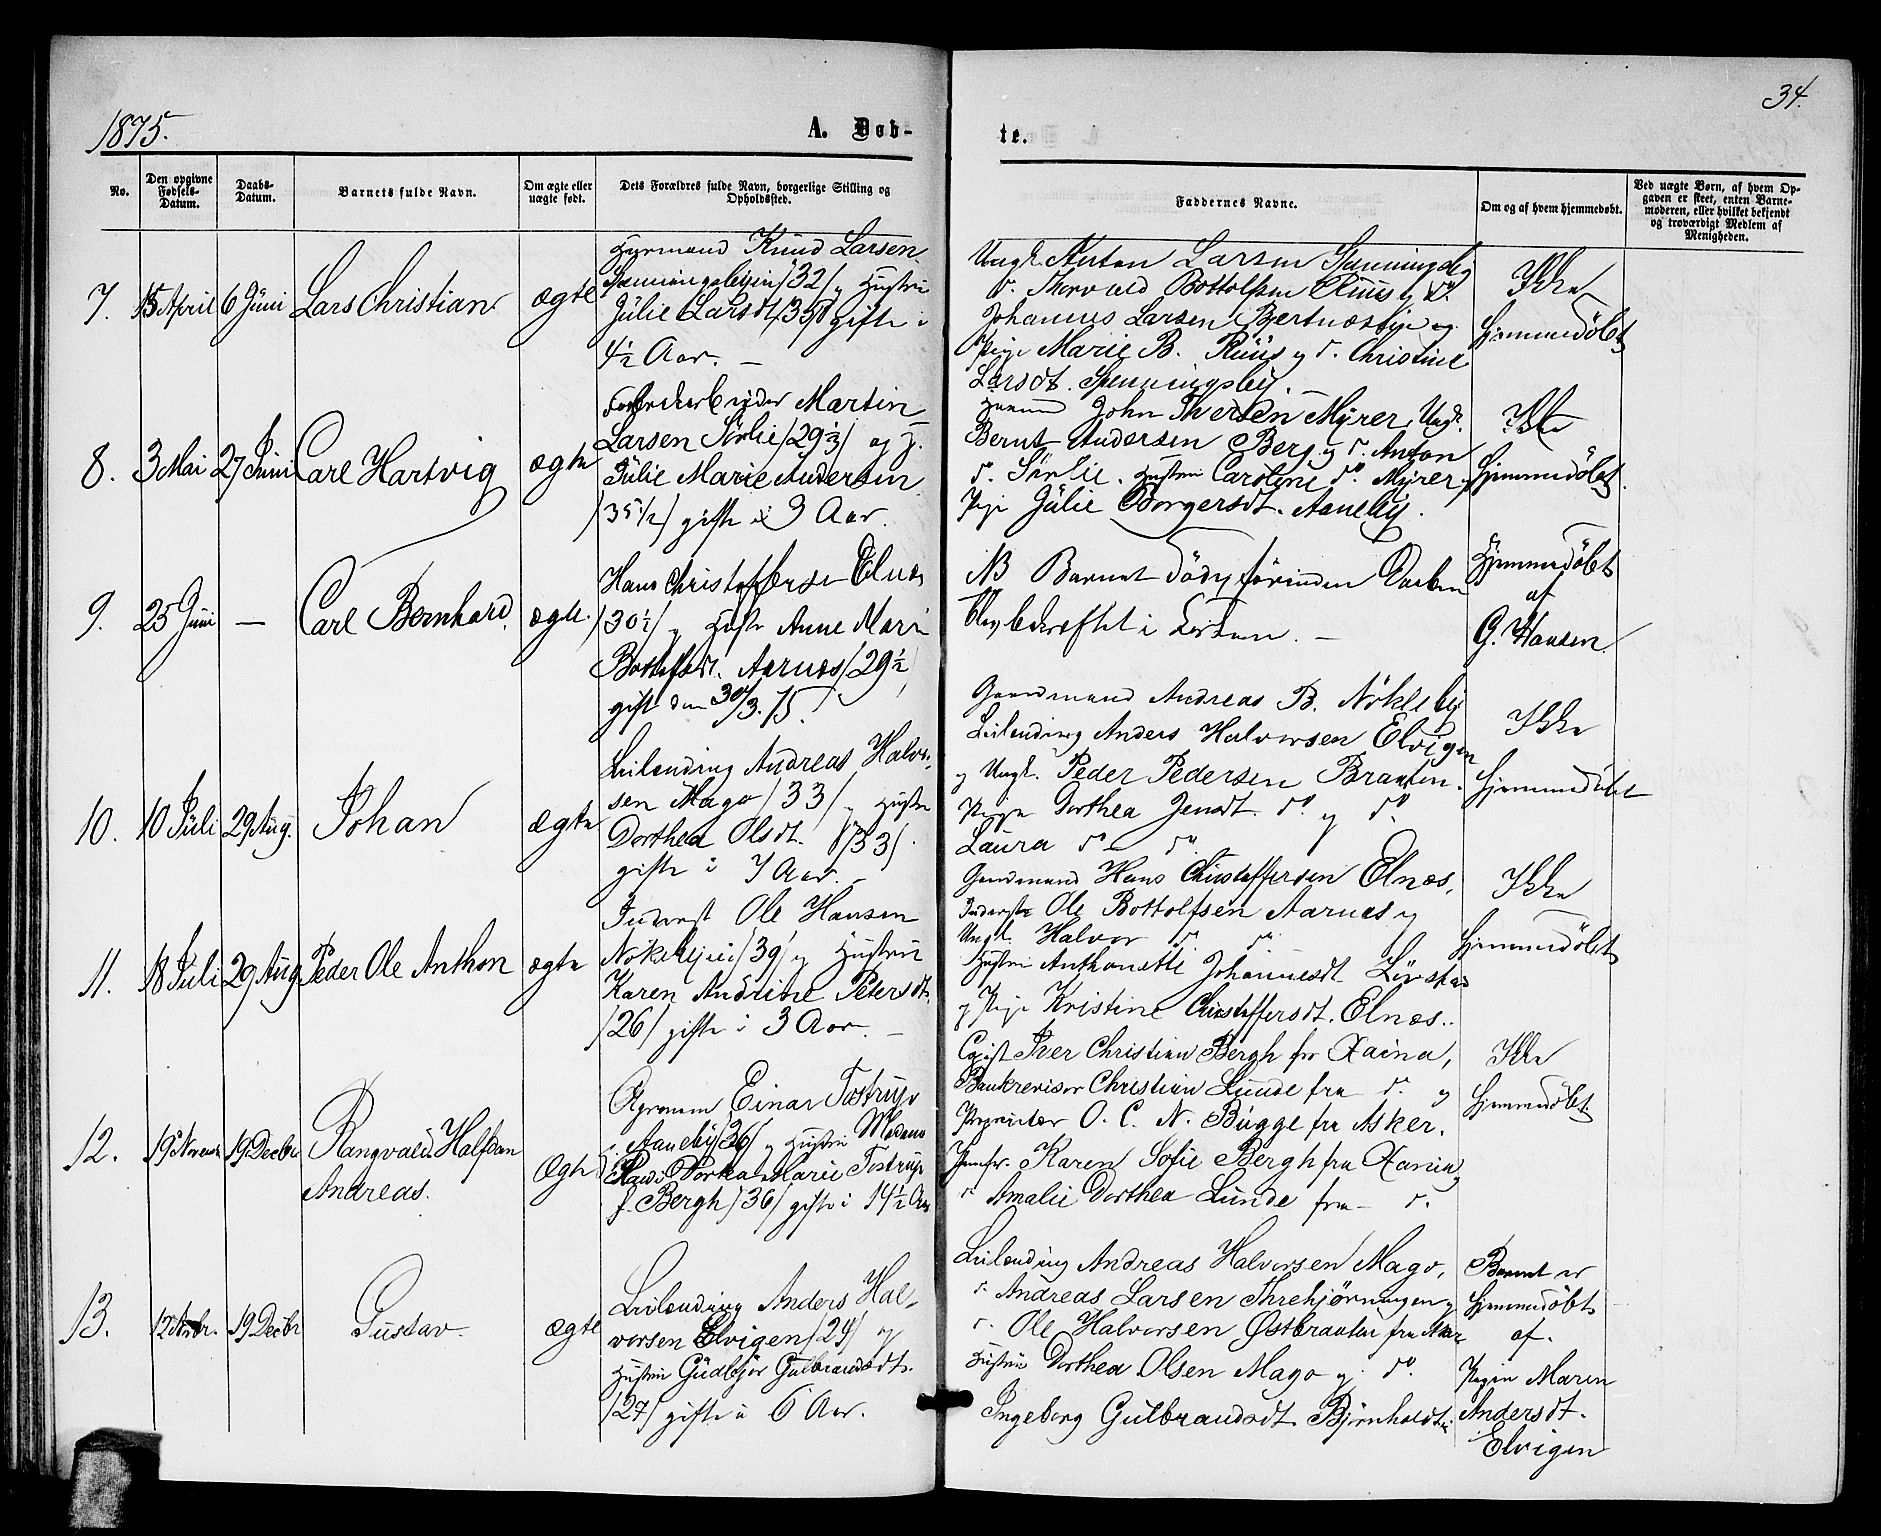 34.
1875.
A. Døb-
te.
No.
Den opgivne Fødsels-Datum.
Daabs-Datum.
Barnets fulde Navn.
Om ægte eller uægte født.
Dets Forældres fulde Navn, borgerlige Stilling og Opholdssted.
Faddernes Navne.
Om og af hvem hjemmedøbt.
Ved uægte Børn, af hvem Op-
gaven er skeet, enten Barne-
moderen, eller hvilket bekjendt
og troværdigt Medlem af
Menigheden.
7. 15 April 6 Juni Lars Christian ægte
Knud Larsen
/32/ og Hustru
Julie Larsdt. /35/ gifte i
4½ Aar. —
Ungk. Anton Larsen
do. Thorvald Bottolfsen Ruus og do.
Johannes Larsen og
Pige Marie B. Ruus og do. Christine
Larsdt. Spenningsby. —
Ikke
hjemmedøbt
8. 3 Mai 27 Juni Carl Hartvig ægte
Martin
Larsen Sörlie /29½/ og H.
Julie Marie Andersen
/35½/ gifte i 3 Aar.
John Thersen Myrer, Ungk.
Bernt Andersen Berg og do. Anton
do. Sörlie. Hustru Caroline do. Myrer,
Pige Julie Borgersdt. Aaneby.
Ikke
hjemmedøbt.
9. 25 Juni — Carl Bernhard. ægte.
Hans Christoffersen Elnes
/30½/ og Hustr Anne Marie
Bottolfsdt. Aarnes /29½/
gift den 30/3.75.
NB Barnet döde förinden Daaben
blev bekræftet i Kirken. —
Hjemmedöbt
af
G. Hansen
10. 10 Juli 29 Aug. Johan ægte
Leilænding Andreas Halvor-
sen Mago /33/ og Hustru
Dorthea Olsdt. /33/.
gifte i 7 Aar. —
Gaardmand Andreas B. Nökleby
Leilænding Anders Halvorsen Elvigen
og Ungk. Peder Pedersen Brauten.
Pige Dorthea Jensdt. do. og do.
Laura do — do.
Ikke
hjemmedöbt
11. 18 Juli 29 Aug Peder Ole Anthon ægte
Inderst Ole Hansen
Nökleby /39/ og Hustru
Karen Andrine Petersdt.
/26/ gifte i 3 Aar. —
Gaardmand Hans Christoffersen Elnæs,
Inderste Ole Bottolfsen Aarnes og
Ungk. Halvor do. do.
Hustru Anthonette Johannesdt.
og Pige Kristine Christoffersdt. Elnæs.
Ikke
hjemmedöbt
12. 19 Novembr 19 Decbr Rangvald Halfdan
Andreas.
Ægte
Agronom Einar Tostrup
i Aaneby /36/ og Hustru
Marie Tostrup
f. Bergh /36/ gifte i 14½ Aar
Copist Iver Christian Bergh fra Xania,
Bankrevisor Christian Lunde fra do. og
Proprietær O. C. N. Bugge fra Asker.
Jomfr. Karen Sofie Bergh fra Xania og
do Amalie Dorthea Lunde fra — do.
Ikke
hjemmedöbt.
13. 12 Novbr. 19 Decbr Gustav. ægte
Leilænding Anders Hal-
vorsen Elvigen /29/ og
Hustru Gudbjör Gulbrandsdt.
/27/ gifte i 6 Aar.
Leilænding Andreas Halvorsen Mago,
do. Andreas Larsen og
do. Ole Halvorsen Østbrauten fra Asker
Hustru Dorthea Olsen Mago og do.
Ingeborg Gulbrandsdt. Björnholdt.
Barnet er
hjemmedöbt
af.
Pigen Maren
Andersdt.
Elvigen